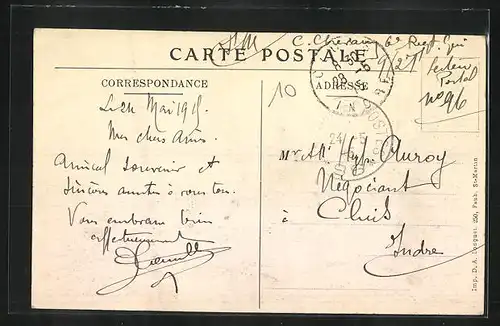 FM C. Chevain 6e Regt. Gui
9/27
Secteur
Postal
No 96
CARTE POSTALE
CORRESPONDANCE
ADRESSE
10
Le 24 Mai 1915.
Mes chers Amis.
Amical souvenir et
sincère amitié à vous tous.
Vous embrasse bien
affectueusement
Mr. Auroy
Négociant
à Cluis
Indre
Imp. D. A. Longuet, 250, Faub. St-Martin